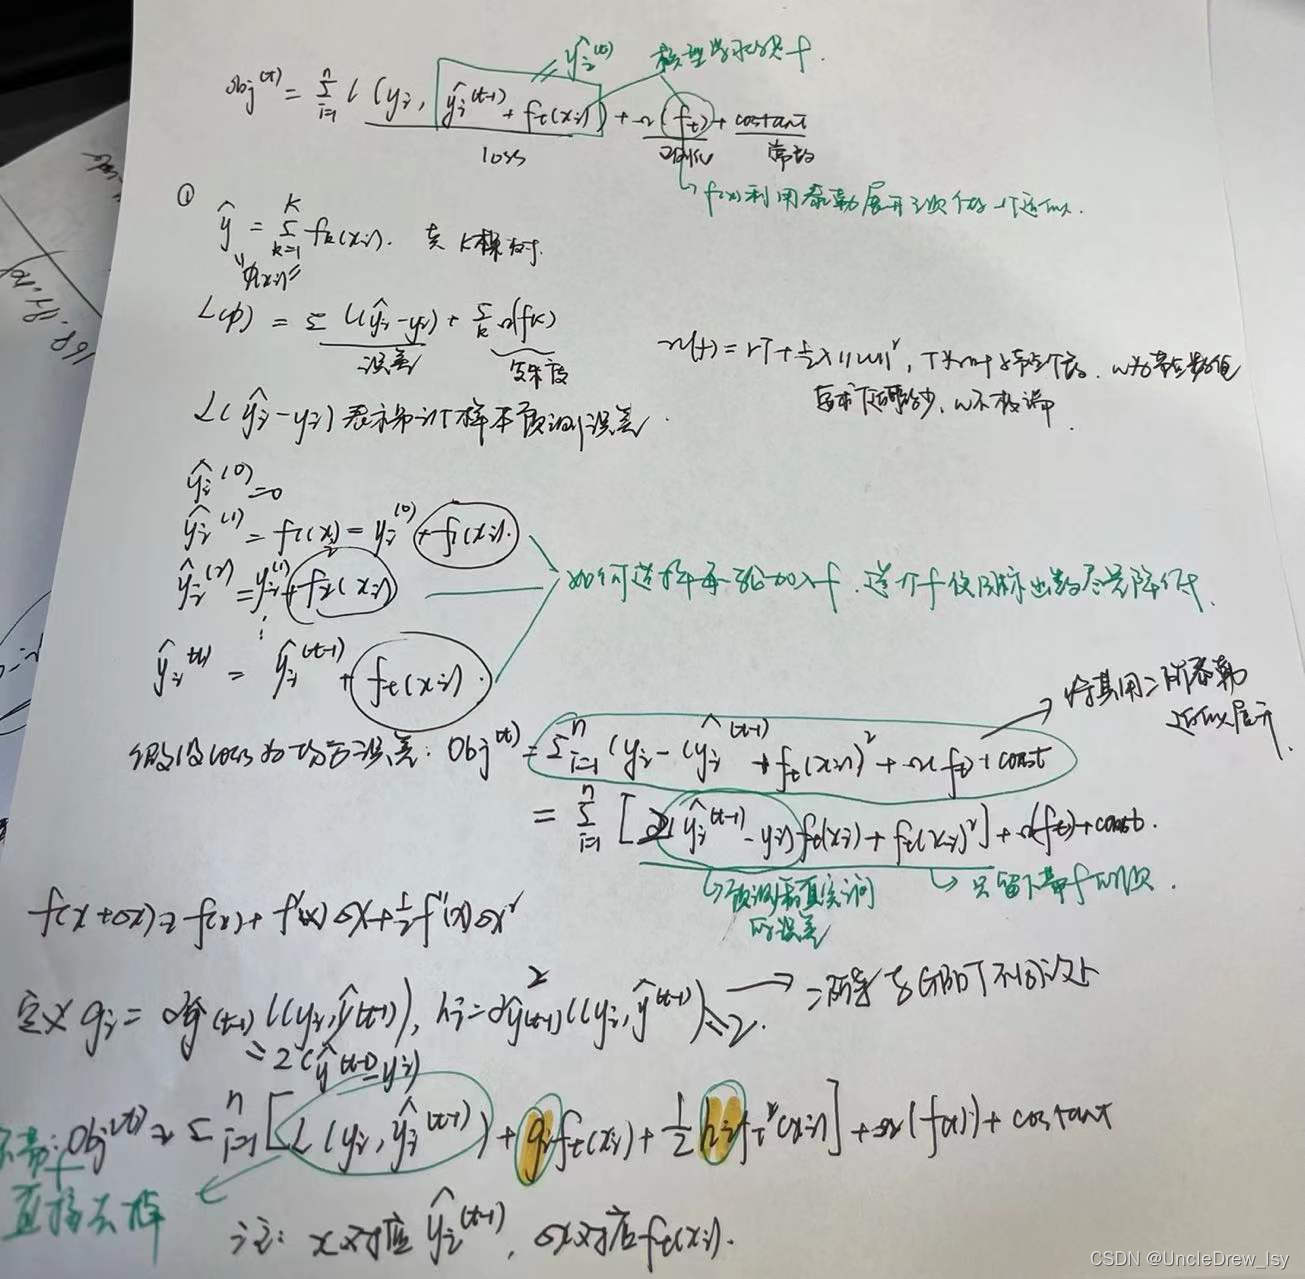 ŷᵢ⁽ᵗ⁾ 模型学习的是 f.
obj⁽ᵗ⁾ = Σᵢ₌₁ⁿ l(yᵢ, ŷᵢ⁽ᵗ⁻¹⁾ + fₜ(xᵢ)) + Ω(fₜ) + costant
loss 正则化 常数
f(x)利用泰勒展开
①
ŷ = Σₖ₌₁ᴷ fₖ(xᵢ). 共K棵树.
φ(xᵢ)
L(φ) = Σ l(ŷᵢ-yᵢ) + Σₖ Ω(fₖ)
误差 复杂度
Ω(f) = rT + ½λ||w||², T为叶子节点个数. w为节点数值
w不极端.
L(ŷᵢ-yᵢ) 表示第i个样本预测误差.
ŷᵢ⁽⁰⁾ = 0
ŷᵢ⁽¹⁾ = f₁(xᵢ) = yᵢ⁽⁰⁾ + f₁(xᵢ).
ŷᵢ⁽²⁾ = yᵢ⁽¹⁾ + f₂(xᵢ)
如何选择每一轮加入f. 这个f使目标函数尽量降低.
⋮
ŷᵢ⁽ᵗ⁾ = ŷᵢ⁽ᵗ⁻¹⁾ + fₜ(xᵢ).
将其用二阶泰勒
近似展开.
假设loss为均方误差: Obj⁽ᵗ⁾ = Σᵢ₌₁ⁿ (yᵢ - (ŷᵢ⁽ᵗ⁻¹⁾ + fₜ(xᵢ))² + Ω(fₜ) + const
= Σᵢ₌₁ⁿ [2(ŷᵢ⁽ᵗ⁻¹⁾ - yᵢ) fₜ(xᵢ) + fₜ(xᵢ)²] + Ω(fₜ) + const.
预测和真实之间 只留下带f的项.
的误差
f(x+Δx) ≈ f(x) + f'(x)Δx + ½f''(x)Δx²
定义 gᵢ = ∂ŷ⁽ᵗ⁻¹⁾ l(yᵢ, ŷ⁽ᵗ⁻¹⁾), hᵢ = ∂²ŷ⁽ᵗ⁻¹⁾ l(yᵢ, ŷ⁽ᵗ⁻¹⁾) = 2. 二阶导与GBDT不同之处
= 2(ŷ⁽ᵗ⁻¹⁾ - yᵢ)
Obj⁽ᵗ⁾ ≈ Σᵢ₌₁ⁿ [L(yᵢ, ŷᵢ⁽ᵗ⁻¹⁾) + gᵢfₜ(xᵢ) + ½hᵢfₜ²(xᵢ)] + Ω(fₜ) + costant
不带f
直接去掉
注: x对应 ŷᵢ⁽ᵗ⁻¹⁾, Δx对应fₜ(xᵢ).
CSDN @UncleDrew_lsy